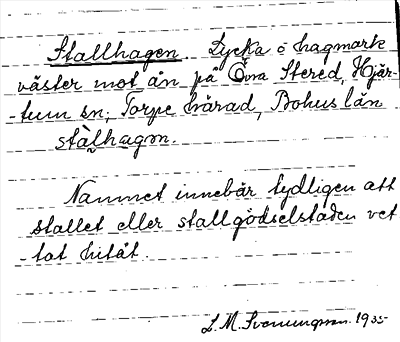 Stallhagen. Lycka i hagmark
väster mot ån på Övra Stered, Hjär-
-tum sn; Torpe härad, Bohus län
stàlhagɔn.
Namnet innebär tydligen att
stallet eller stallgödselstaden vet
-tat hitåt.
L. M. Svenungsson. 1935